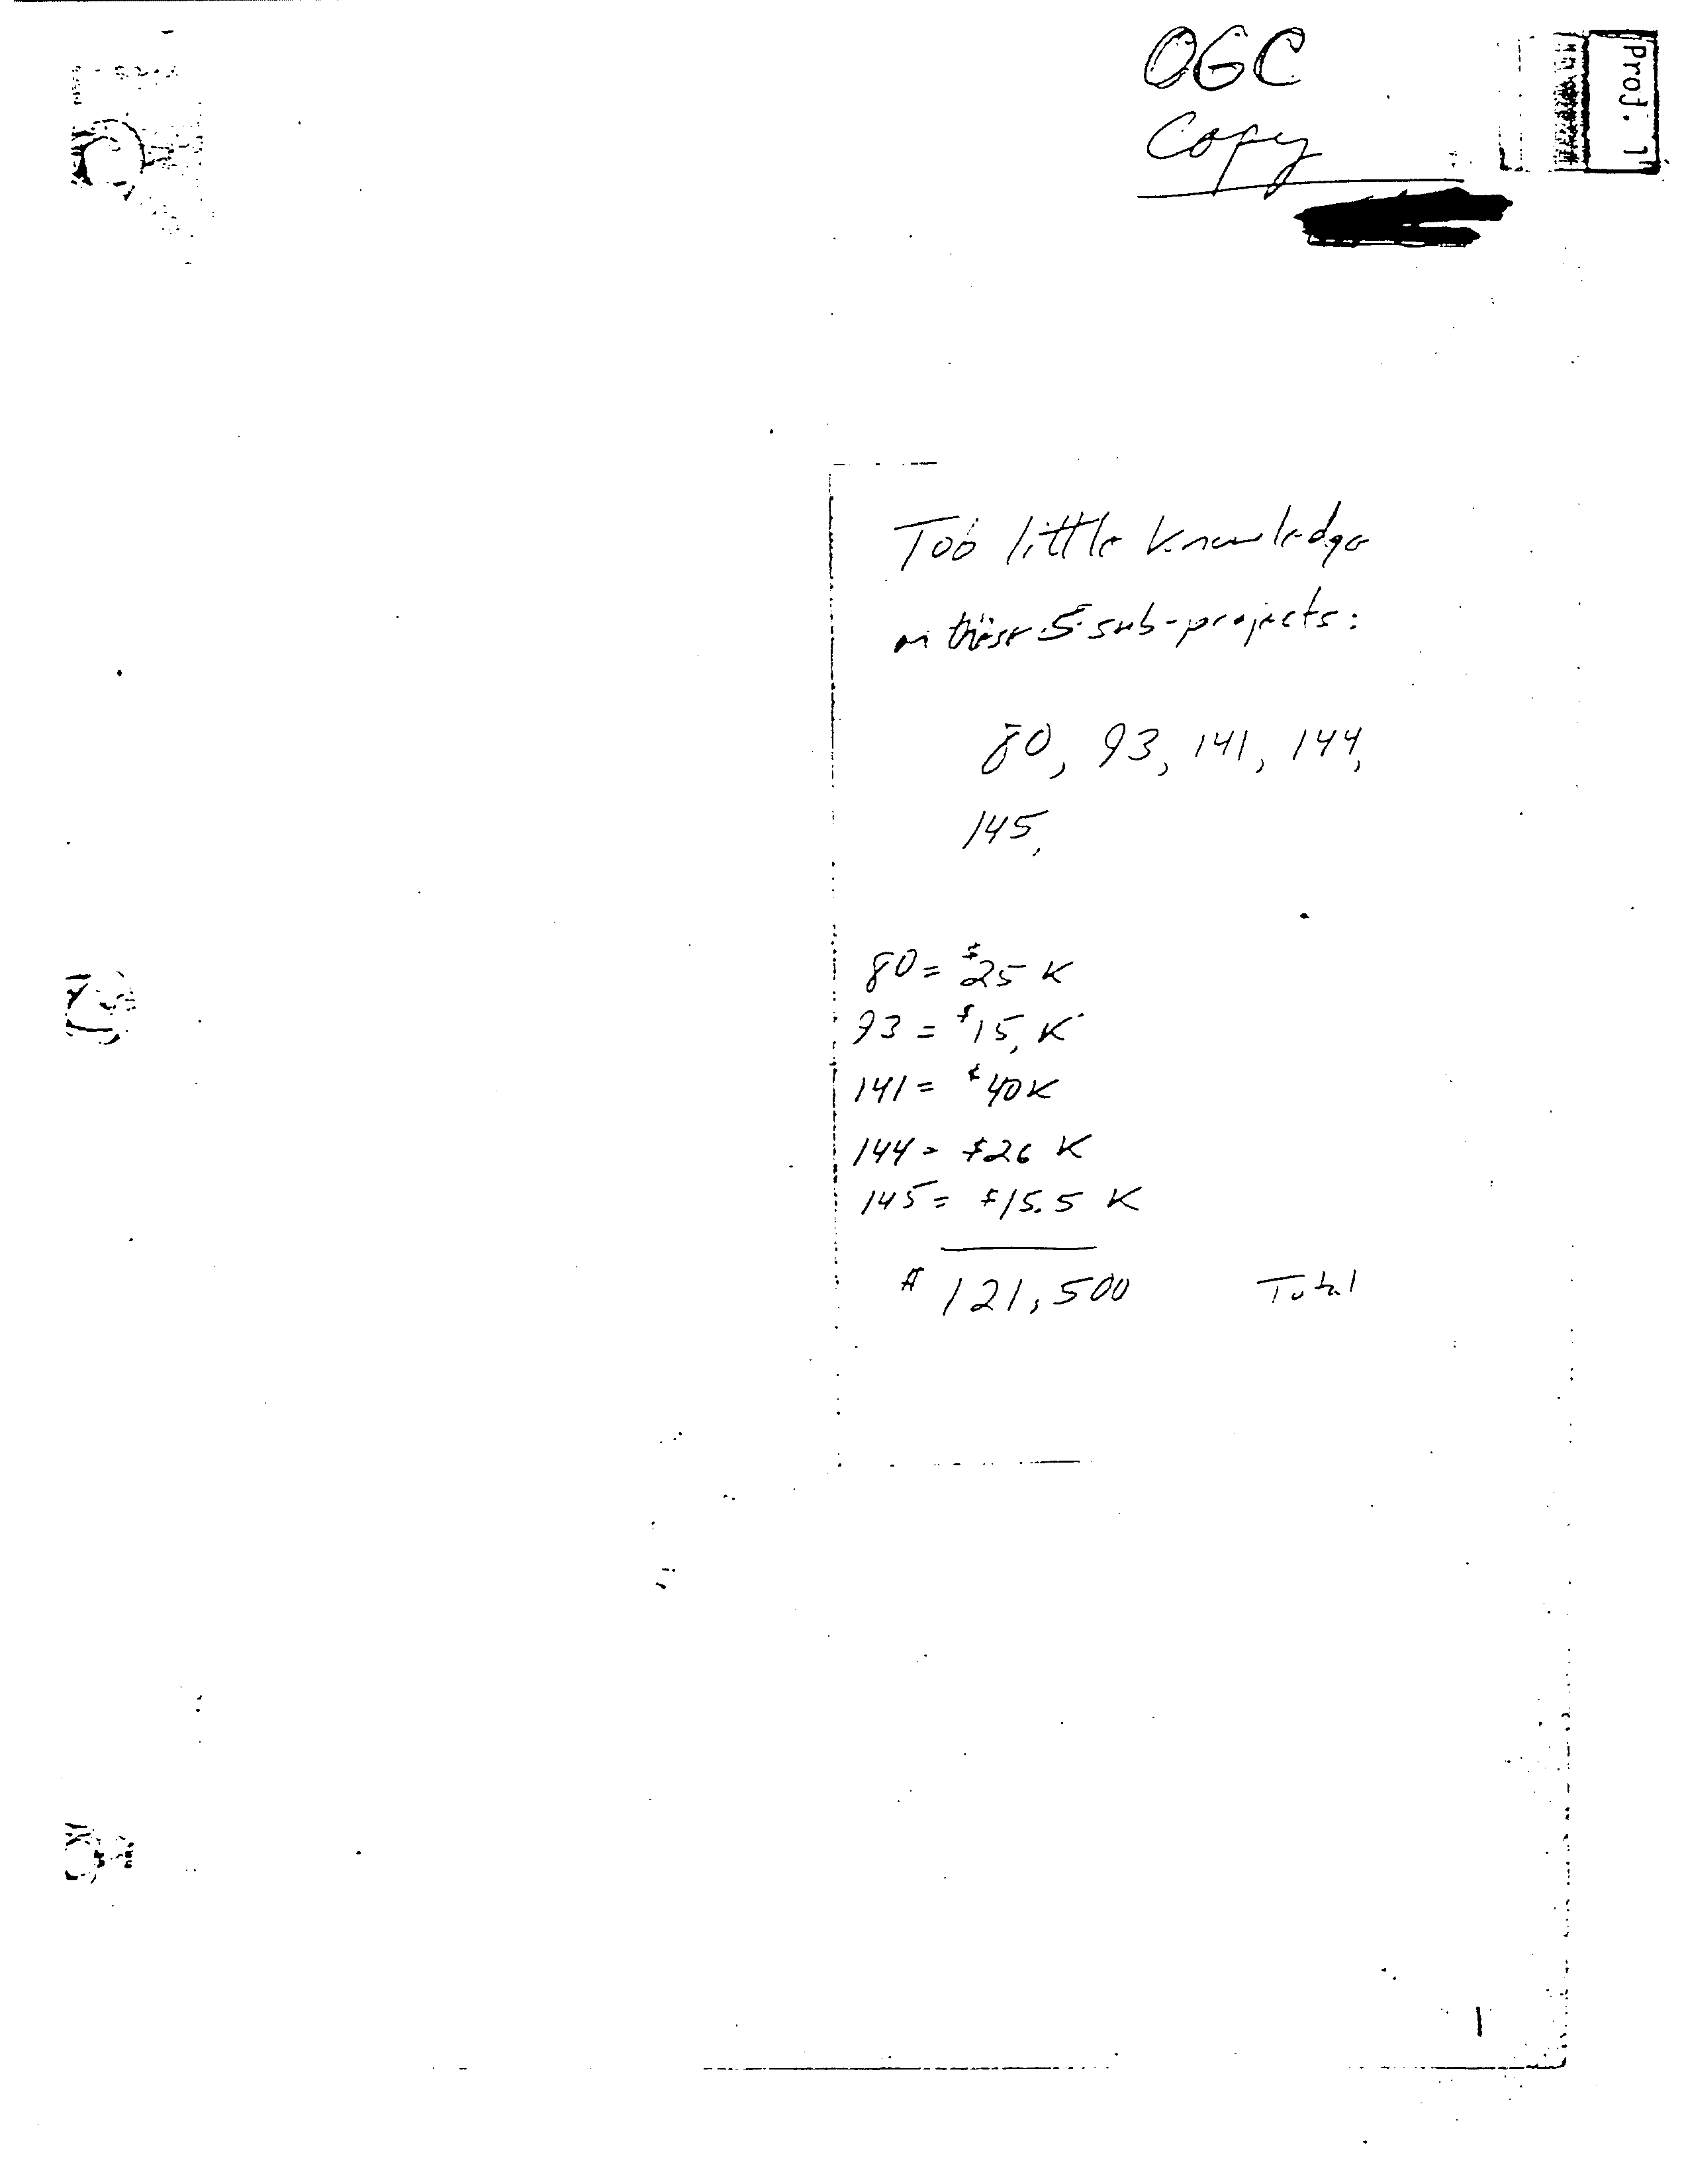 OGC
Copy
Proj. 1
Too little knowledge
on these 5 sub-projects:
80, 93, 141, 144,
145,
80 = $25 K
93 = $15, K
141 = $40K
144 = $26 K
145 = $15.5 K
$ 121,500 Total
1